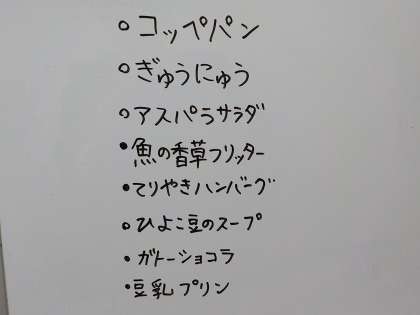 ○コッペパン
○ぎゅうにゅう
○アスパラサラダ
•魚の香草フリッター
•てりやきハンバーグ
○ひよこ豆のスープ
•ガトーショコラ
•豆乳プリン